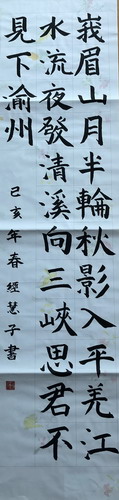 峩眉山月半輪秋影入平羌江
水流夜發清溪向三峽思君不
見下渝州
己亥年春經慧子書